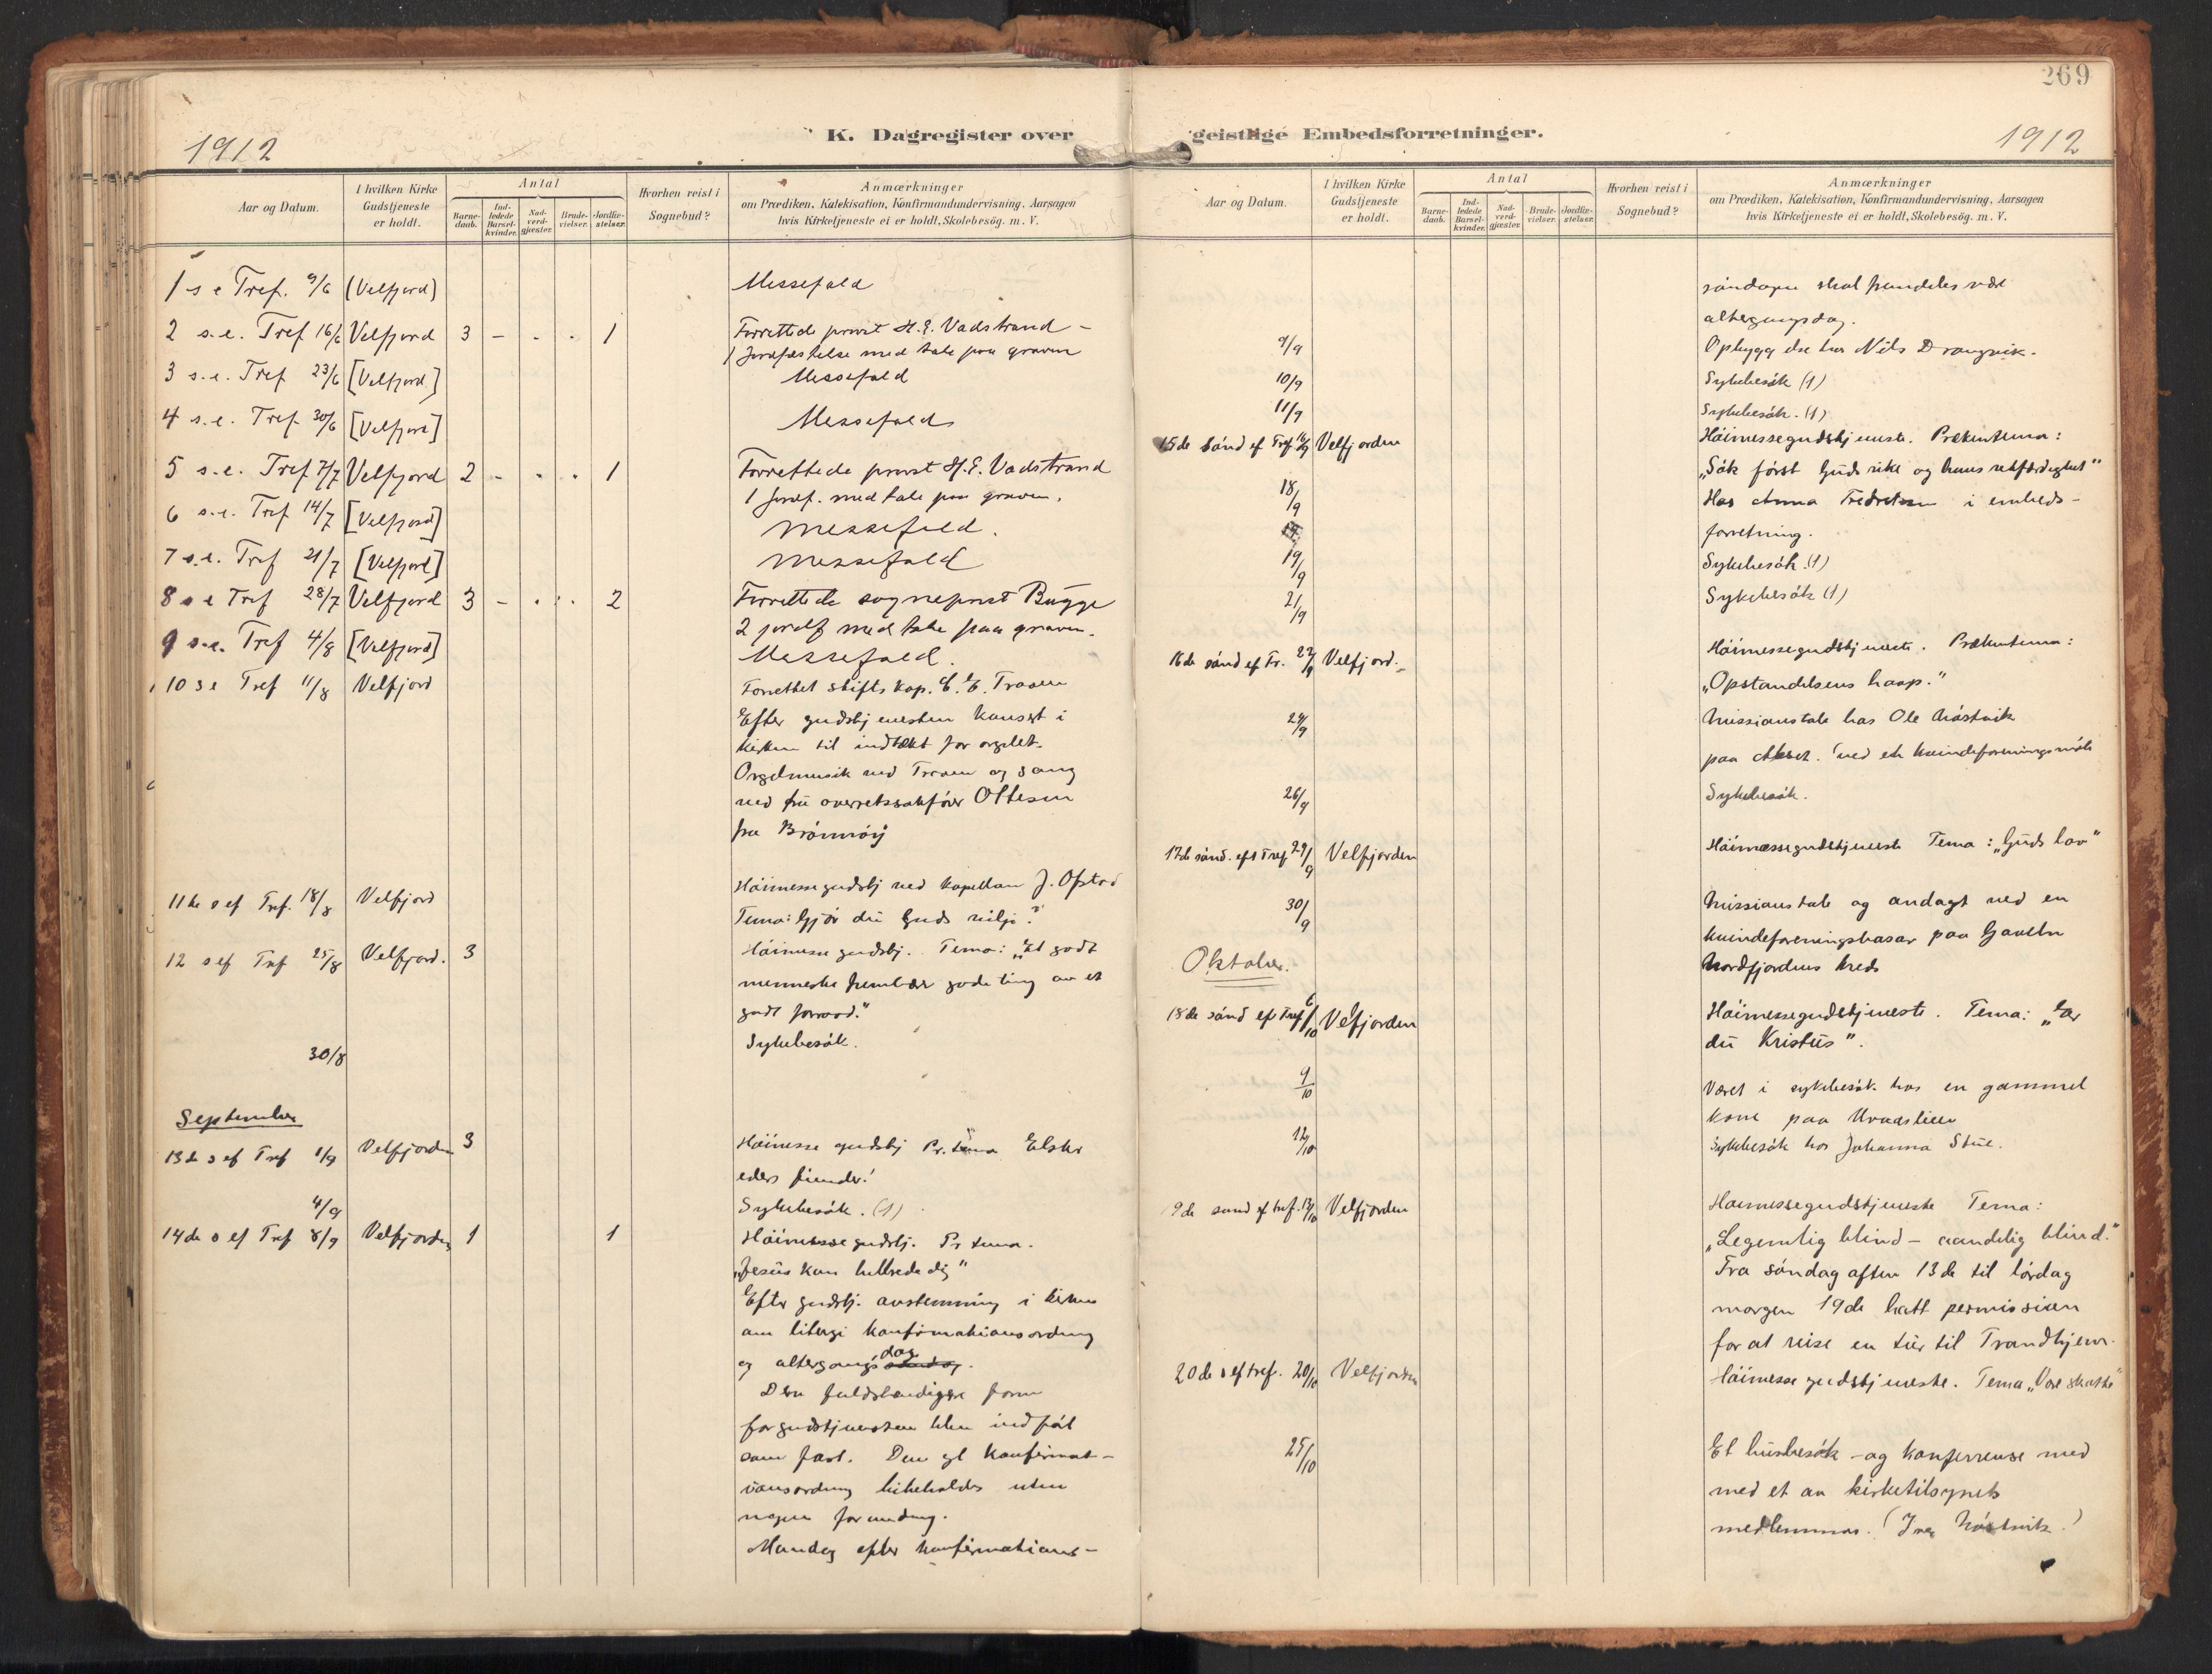 269
1912
K. Dagregister over geistlige Embedsforretninger.
1912
Aar og Datum.
I hvilken Kirke Gudstjeneste er holdt.
Antal
Barnedaab.
Indledede Barselkvinder.
Nadverdgjæster.
Brudevielser.
Jordfæstelser.
Hvorhen reist i Sognebud?
Anmærkninger
om Prædiken, Katekisation, Konfirmandundervisning, Aarsagen
hvis Kirketjeneste ei er holdt, Skolebesög. m. V.
1 s e Tref. 9/6 (Velfjord) Messefald
2 s.e. Tref 16/6 Velfjord 3 - . . 1 Forrettede provst H.E. Vadstrand -
1 Jordfæstelse med tale paa graven
3 s.e. Tref 23/6 [Velfjord] Messefald
4 s.e. Tref 30/6 [Velfjord] Messefald
5 s.e. Tref 7/7 Velfjord 2 - . . 1 Forrettede provst H.E. Vadstrand
1 Jordf. med tale paa graven.
6 s.e. Tref 14/7 [Velfjord] Messefald.
7 s.e. Tref 21/7 [Velfjord] Messefald
8 s e Tref 28/7 Velfjord 3 - . . 2 Forrettede sogneprest Bugge
2 jordf med tale paa graven.
9 s.e. Tref 4/8 [Velfjord] Messefald.
10 s e Tref 11/8 Velfjord Forrettet stiftskap.
Efter gudstjenesten konsert i
kirken til indtækt for orgelet.
Orgelmusik ved og sang
ved fru overretssakfører Ottesen
fra Brönnöy
11te s ef Tref. 18/8 Velfjord Höimessegudstj ved kapellan J. Ofstad
Tema: Gjör du Guds vilje?
12 s ef Tref 25/8 Velfjord. 3 Höimesse gudstj. Tema: "Et godt
menneske frembær gode ting av et
godt forraad."
30/8 Sykebesök.
September
13de s ef Tref 1/9 Velfjorden 3 Höimesse gudstj Pr. tema Elsker
eders fiender!
4/9 Sykebesök. (1)
14de s ef Tref 8/9 Velfjorden 1 1 Höimesse gudstj. Pr tema.
"Jesus kan helbrede dig"
Efter gudstj. avstemning i kirken
om liturgi konfirmationsordning
og altergangsdag.
Den fuldstændigere form
for gudstjenesten blev indfört
som fast. Den gl konfirmat-
ionsordning bibeholdes uten
nogen forandring.
Mandag efter konfirmations-
Aar og Datum.
I hvilken Kirke Gudstjeneste er holdt.
Antal
Barnedaab.
Indledede Barselkvinder.
Nadverdgjæster.
Brudevielser.
Jordfæstelser.
Hvorhen reist i Sognebud?
Anmærkninger
om Prædiken, Katekisation, Konfirmandundervisning, Aarsagen
hvis Kirketjeneste ei er holdt, Skolebesög. m. V.
söndagen skal fremdeles være
altergangsdag.
9/9 Opbygg hos Nils Drangvik.
10/9 Sykebesök (1)
11/9 Sykebesök. (1)
15de sönd ef Tref Velfjorden Höimessegudstjeneste. Prækentema:
"Sök först Guds rike og hans retfærdighet"
18/9 Hos Anna Fredriksen i embeds-
forretning.
19/9 Sykebesök. (1)
21/9 Sykebesök (1)
16de sönd ef Tr. 22/9 Velfjord. Höimessegudstjeneste. Prækentema:
"Opstandelsens haap."
24/9 Missionstale hos Ole
paa . ved et kvindeforeningsmöte
26/9 Sykebesök.
17de sönd. eft Tref 29/9 Velfjorden Höimessegudstjeneste Tema: "Guds lov"
30/9 Missionstale og andagt ved en
kvindeforeningsbasar paa
Nordfjordens kreds
Oktober.
18de sönd eft Tref 6/10 Velfjorden Höimessegudstjeneste. Tema: "
du Kristus".
9/10 Været i sykebesök hos en gammel
kone paa
12/10 Sykebesök hos Johanna
9de sönd ef tref. 13/10 Velfjorden Höimessegudstjeneste Tema:
"Legemlig blind - aandelig blind."
Fra söndag aften 13de til lördag
morgen 19de hatt permission
for at reise en tur til Trondhjem.
20de s ef tref. 20/10 Velfjorden Höimesse gudstjeneste. Tema "
25/10 Et husbesök - og konferense med
med et av kirketilsynets
medlemmer.